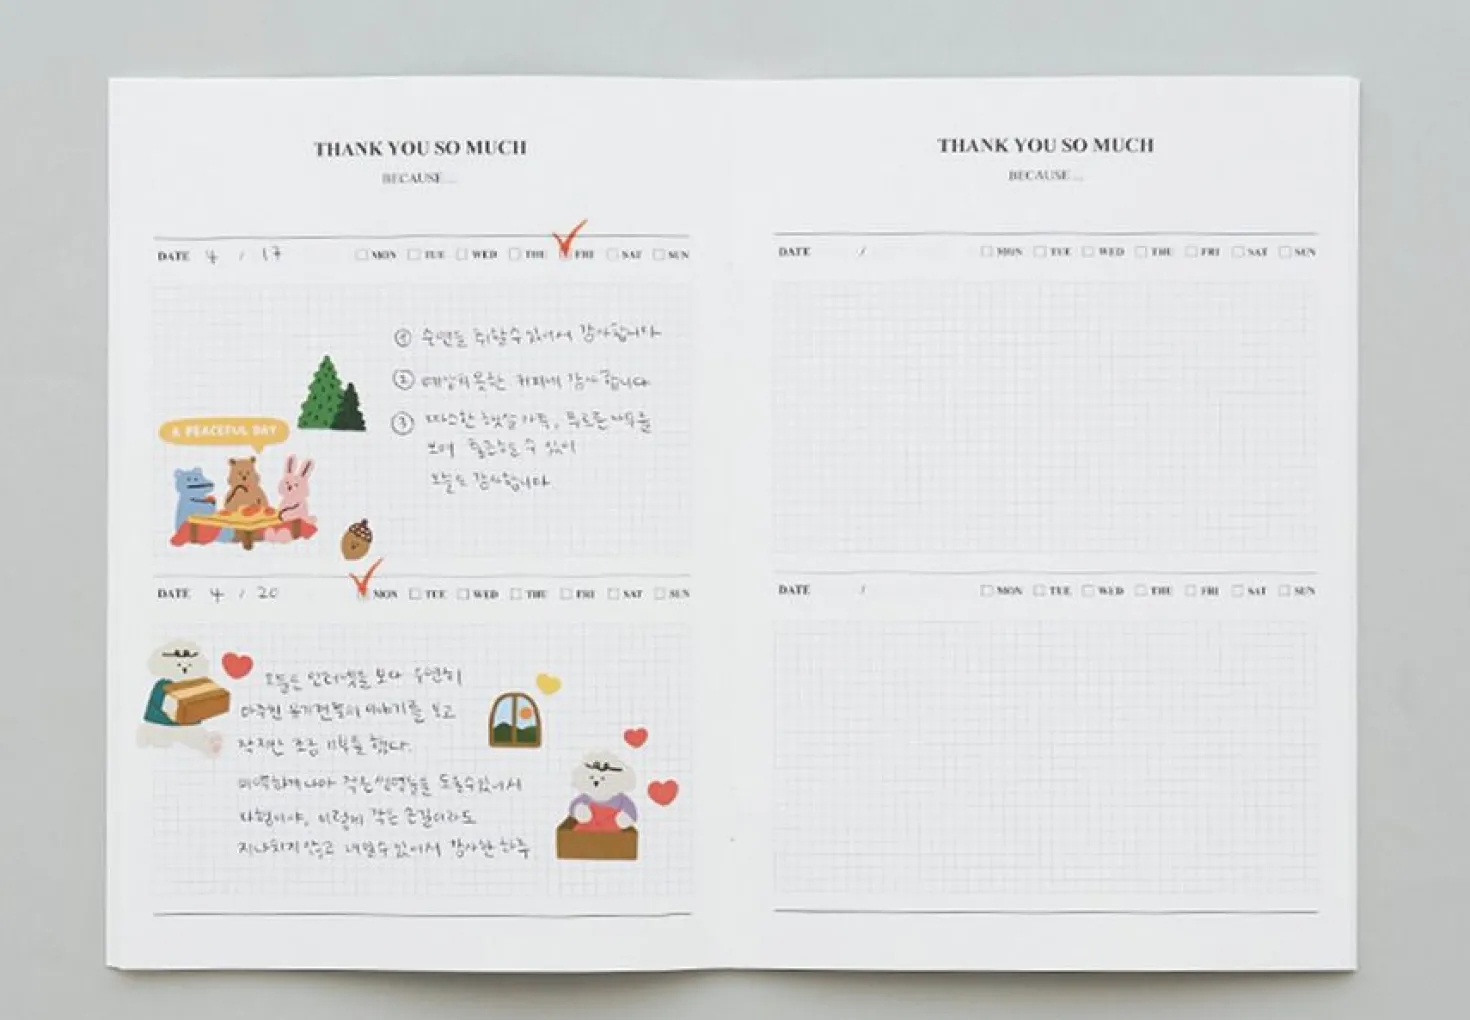 THANK YOU SO MUCH
BECAUSE...
DATE 4 / 17 MON TUE WED THU FRI SAT SUN
① 수면을 취할수있어서 감사합니다
② 예상치못한 커피에 감사합니다
③ 따스한 햇살가득, 푸르른나무를
보며 수 있어
오늘도 감사합니다
A PEACEFUL DAY
DATE 4 / 20 MON TUE WED THU FRI SAT SUN
오늘은 인터넷을 보다 우연히
마주친 유기견들의 이야기를 보고
작지만 조금 기부를 했다.
미약하게나마 작은생명들을 도울수있어서
다행이야, 이렇게 작은 손길이라도
지나치지않고 내밀수있어서 감사한 하루
THANK YOU SO MUCH
BECAUSE...
DATE / MON TUE WED THU FRI SAT SUN
DATE / MON TUE WED THU FRI SAT SUN